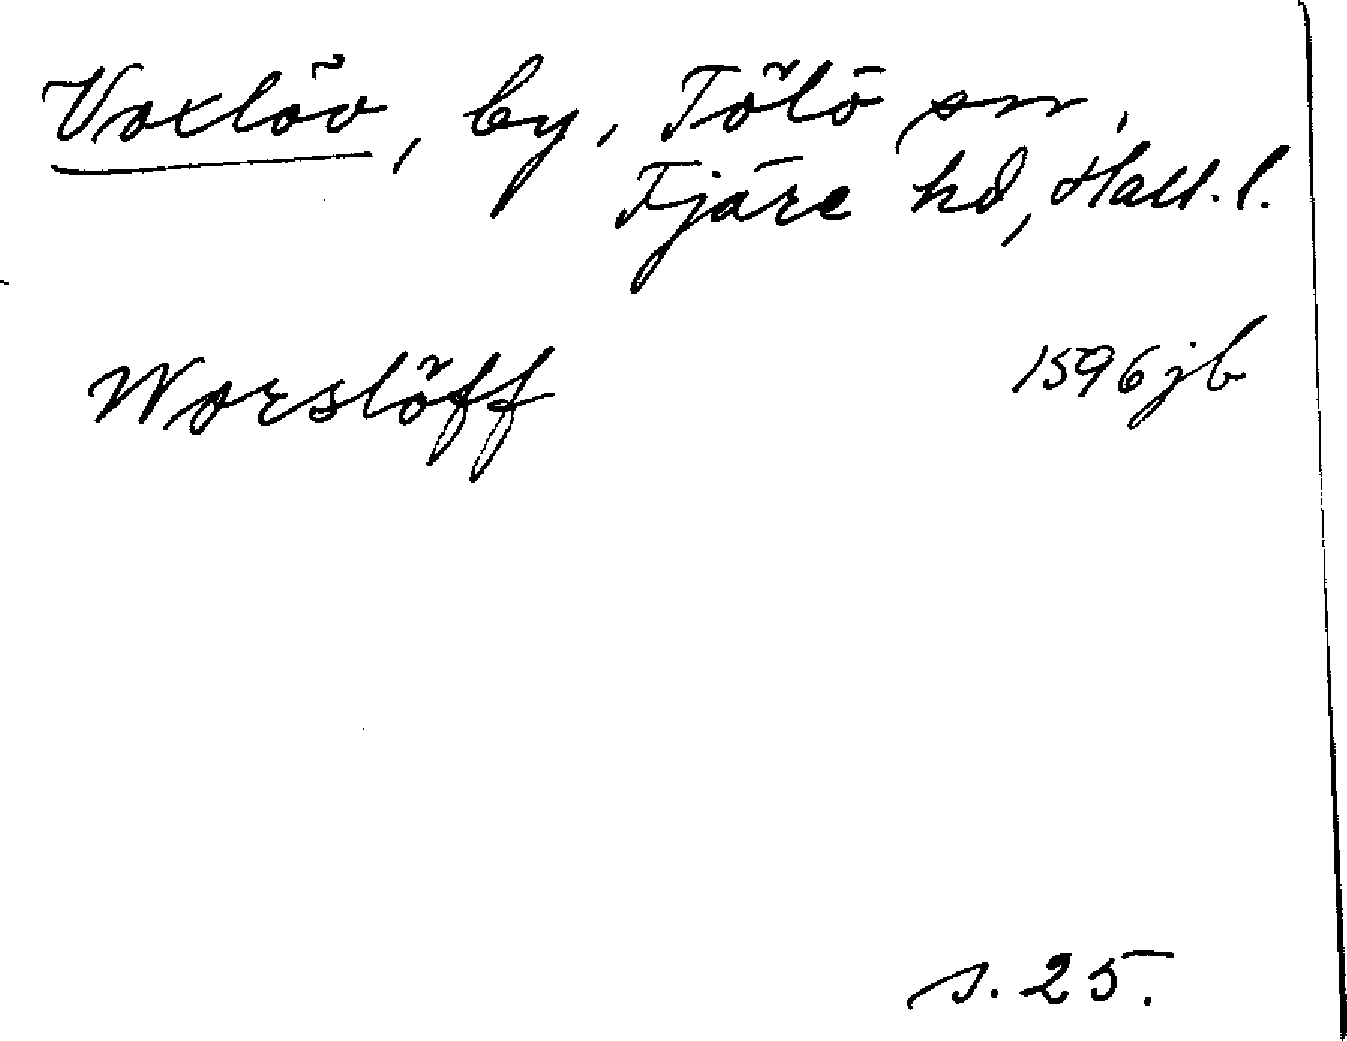 Voxlöv, by, Tölö sn,
Fjäre hd, Hall. l.
Worslöff 1596 jb
s. 25.